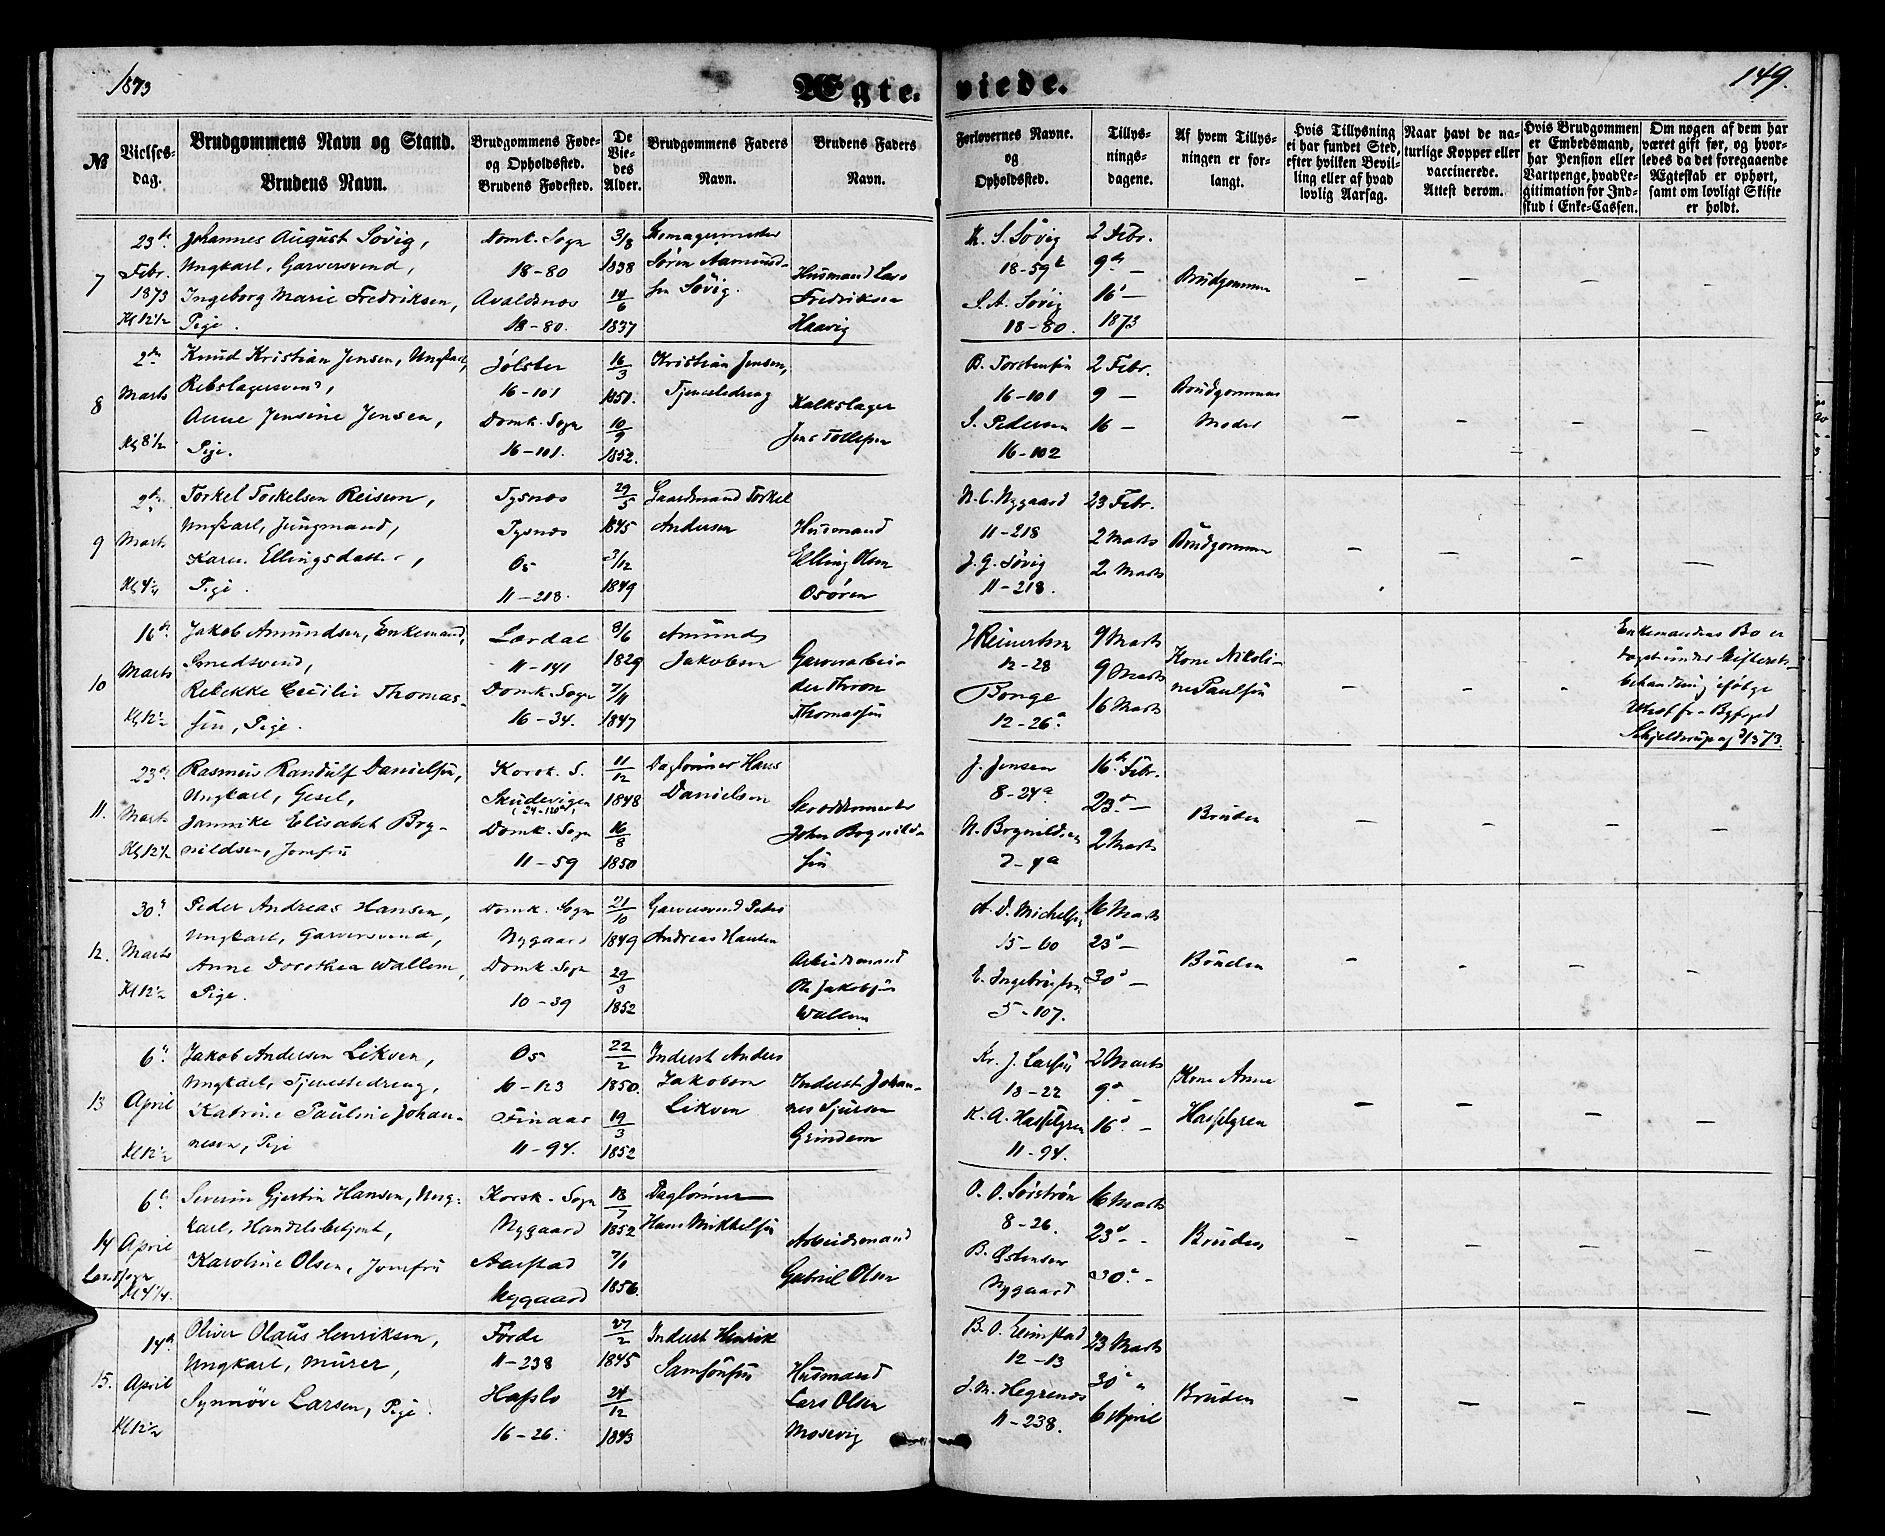 1873
Ægte-viede.
149.
№
Vielses-
dag.
Brudgommens Navn og Stand.
Brudens Navn.
Brudgommens Føde-
og Opholdssted.
Brudens Fødested.
De
Vie-
des
Alder.
Brudgommens Faders
Navn.
Brudens Faders
Navn.
Forlovernes Navne.
og
Opholdssted.
Tillys-
nings-
dagene.
Af hvem Tillys-
ningen er for-
langt.
Hvis Tillysning
ei har fundet Sted,
efter hvilken Bevil-
ling eller af hvad
lovlig Aarsag.
Naar havt de na-
turlige Kopper eller
vaccinerede.
Attest derom.
Hvis Brudgommen
er Embedsmand,
har Pension eller
Vartpenge, hvad Le-
gitimation for Ind-
skud i Enke-Cassen.
Om nogen af dem har
været gift før, og hvor-
ledes da det foregaaende
Ægteskab er ophørt,
samt om lovligt Skifte
er holdt.
7
23de
Febr.
1873
Kl 12½
Johannes August Søvig,
Ungkarl, Garversvend,
Ingeborg Marie Fredriksen,
Pige.
Domk. Sogn
18-80
Avaldsnæs
18-80.
3/8
1838
14/6
1837
Skomagermester
Søren Aamund-
sen Søvig.
Husmand Lars
Fredriksen
Haavig
K. S. Søvig
18-59b
S. A. Søvig
18-80.
2 Febr.
9de —
16 —
1873
Brudgommen
— — — —
8
2den
Marts
Kl 8½
Knud Kristian Jensen, Ungkarl,
Rebslagersvend,
Anne Jensine Jensen,
Pige.
Jølster
16-101
Domk. Sogn
16-101.
16/3
1851.
10/9
1852.
Kristian Jensen,
Tjenestedreng
Kalkslager
Jens Tollefsen
B. Torstensen
16-101
S. Pedersen
16-102
2 Febr.
9 —
16 —
Brudgommens
Moder
— — — —
9
2den
Marts
Kl 4½
Torkel Torkelsen Reisem,
Ungkarl, Jungmand,
Karen Ellingsdatter,
Pige.
Tysnæs
Tysnæs
Os
11-218.
29/5
1845
3/12
1849
Gaardmand Torkel
Andersen
Husmand
Elling Olsen
Osøren
N. C. Nygaard
11-218
J. G. Søvig
11-218.
23 Febr.
2 Marts
2 Marts
Brudgommen
— — — —
10
16de
Marts
Kl 12½
Jakob Amundsen, Enkemand,
Smedsvend,
Rebekke Cecilie Thomas-
sen, Pige.
Lærdal
11-141
Domk. Sogn
16-34.
8/6
1829
7/11
1847
Amund
Jakobsen
Garverarbei-
der Thron
Thomassen
J Reinertsen
12-28
Bonge
12-26a.
9 Marts
9 Marts
16 Marts
Kone Nikoli-
ne Paulsen
— — —
Enkemandens Bo er
taget under Skifterets-
behandling ifølge
Attest fra Byfoged
Schjelderup af 3/3 73.
11.
23de
Marts
Kl 12½
Rasmus Randulf Danielsen,
Ungkarl, Gesel,
Jannike Elisabet Bry-
nildsen, Jomfru
Korsk. S.
Skudevigen
(24-120a)
Domk. Sogn
11-59
11/12
1848
16/8
1850
Daglønner Hans
Danielsen
Skræddermester
John Brynild-
sen
J. Jensen
8-24a.
N. Brynildsen
7-4a
16de Febr.
23de —
2 Marts
Bruden
— — — —
12.
30te
Marts
Kl 12½
Peder Andreas Hansen,
Ungkarl, Garversvend,
Anne Dorothea Wallem,
Pige.
Domk. Sogn
Nygaard
Domk. Sogn
10-39
21/10
1849
29/3
1852
Garversvend Peder
Andreas Hansen
Arbeidsmand
Ole Jakobsen
Wallem
A. D. Michelsen
15-60
E. Ingebrigtsen
5-107.
16 Marts
23de —
30de —
Bruden
— — — —
13
6te
April
Kl 12½
Jakob Andersen Likven,
Ungkarl, Tjenestedreng,
Katrine Pauline Johan-
nesen, Pige
Os
11-123
Finaas
11-94.
22/2
1850.
19/3
1852
Inderst Anders
Jakobsen
Likven
Inderst Johan-
nes Sjursen
Grindem
Kr. J. Larsen
18-22
K. A. Hasselgren
11-94.
2 Marts
9de —
16de —
Kone Anne
Hasselgren
— — — —
14
Landsogn
6te
April
Kl 4¼.
Severin Gjertin Hansen, Ung-
karl, Handelsbetjent,
Karoline Olsen, Jomfru
Korsk. Sogn
Nygaard
Aarstad
Nygaard
18/7
1852
7/1
1856.
Dagløнner
Hans Mikkelsen
Arbeidsmand
Gabriel Olsen
O. O. Sørstrøn
8-26.
B. Østensen
Nygaard
16 Marts
23de —
30te —
Bruden
— — — —
15.
14de
April
Kl 12½
Oliver Olaus Henriksen,
Ungkarl, Murer,
Synnøve Larsen, Pige.
Førde
11-238
Hafslo
16-26.
27/2
1845
24/12
1843
Inderst Henrik
Samsonsen
Husmand
Lars Olsen
Mosevig
B. O. Eimstad
12-13
J. M. Hegrenæs
11-238.
23 Marts
30te "
6 April
Bruden
— — — —